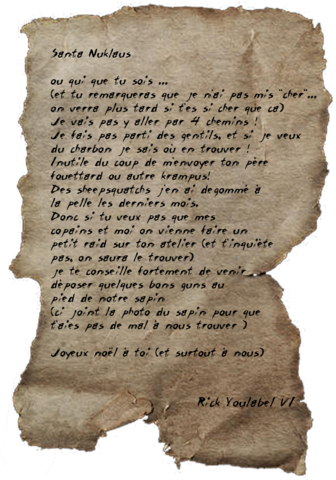 Santa Nuklaus
ou qui que tu sois ...
(et tu remarqueras que je n'ai pas mis "cher"...
on verra plus tard si t'es si cher que ça)
Je vais pas y aller par 4 chemins !
Je fais pas parti des gentils, et si je veux
du charbon je sais où en trouver !
Inutile du coup de m'envoyer ton père
fouettard ou autre krampus!
Des sheepsquatchs j'en ai dégommé à
la pelle les derniers mois.
Donc si tu veux pas que mes
copains et moi on vienne faire un
petit raid sur ton atelier (et t'inquiète
pas, on saura le trouver)
je te conseille fortement de venir
déposer quelques bons guns au
pied de notre sapin
(ci joint la photo du sapin pour que
t'aies pas de mal à nous trouver )
Joyeux noël à toi (et surtout à nous)
Rick Youlabel VI